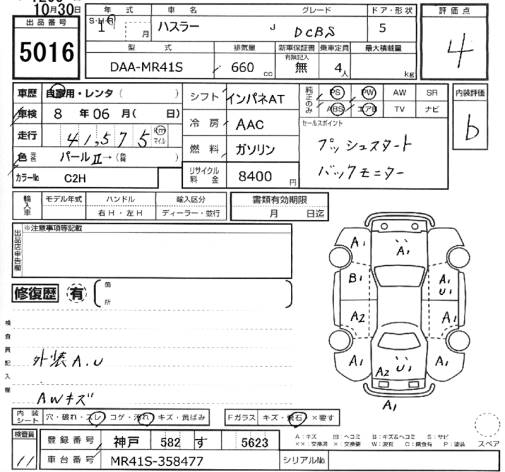 10月30日
出品番号
5016
年式 車名 グレード ドア・形状 評価点
S・H・R 1 月 ハスラー J DCBS 5
4
型式 排気量 新車保証書 有限記入 乗車定員 最大積載量
DAA-MR41S 660 cc 無 4人 kg
車歴 自家用・レンタ( )
車検 8年 06月( 日)
走行 41,575 km マイル
色 パールⅡ→( )
カラーNo C2H
シフト インパネAT
冷房 AAC
燃料 ガソリン
リサイクル料金 8400 円
純正のみ PS PW AW SR
ABS エアB TV ナビ
セールスポイント
プッシュスタート
バックモニター
内装評価
b
輸入車 モデル年式 ハンドル 輸入区分
右H・左H ディーラー・並行
書類有効期限
月 日迄
出品店申告欄 ※注意事項等記載
修復歴 有 箇所
検査員記入欄
外装A.U
AWキズ
A1 A1 A1
B1 A1 U1
A2 A1
A2 U1 A1
A1
内装シート 穴・破れ・スレ コゲ・汚れ キズ・黄ばみ Fガラス キズ・飛石 ×要す
検査員 11
登録番号 神戸 582 す 5623
車台番号 MR41S-358477 シリアルNo
A:キズ U:ヘコミ B:キズ&ヘコミ S:サビ
××:交換済 ×:交換要 W:波有 C:腐食有 P:塗装
スペア